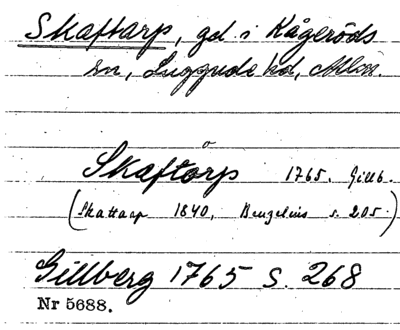 Skaftarp, gd i Kågeröds
sn, Luggude hd, Mlm.
Skaftorp 1765. Gillb.
(Skattarp 1840, Bengelius s. 205.)
Gillberg 1765 s. 268
Nr 5688.